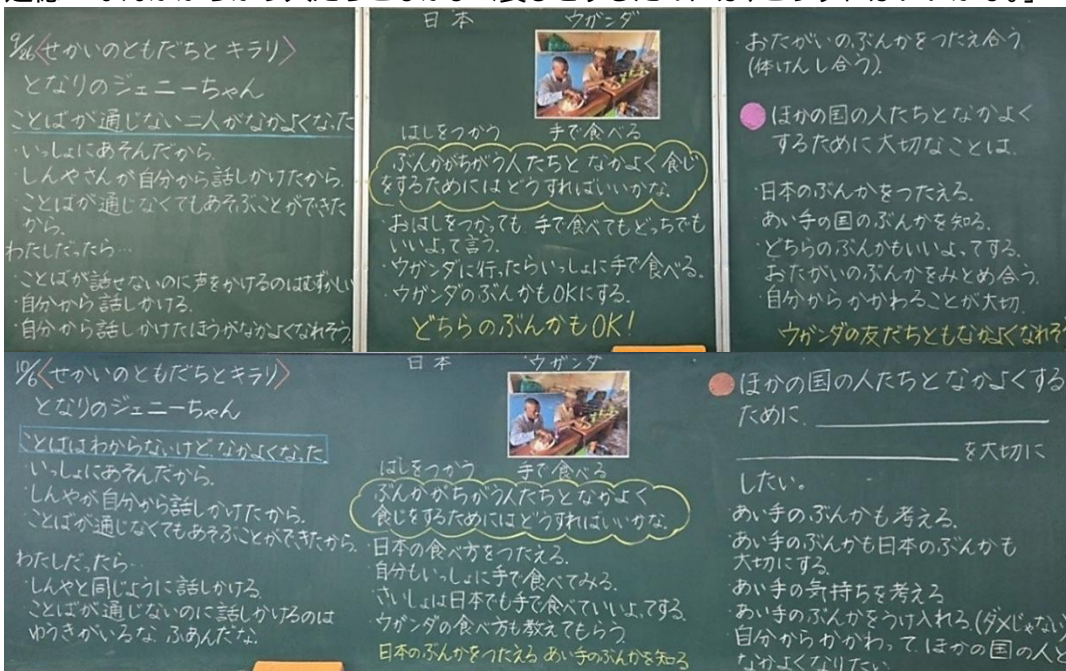 9/26〈せかいのともだちと キラリ〉
となりのジェニーちゃん
ことばが通じない二人がなかよくなった
・いっしょにあそんだから。
・しんやさんが自分から話しかけたから。
・ことばが通じなくてもあそぶことができた
から。
わたしだったら…
・ことばが話せないのに声をかけるのはむずかしい
・自分から話しかける。
・自分から話しかけたほうがなかよくなれそう。
日本 ウガンダ
はしをつかう 手で食べる
ぶんかがちがう人たちと なかよく食じ
をするためにはどうすればいいかな。
・おはしをつかっても、手で食べてもどっちでも
いいよって言う。
・ウガンダに行ったらいっしょに手で食べる。
・ウガンダのぶんかもOKにする。
どちらのぶんかもOK!
おたがいのぶんかをつたえ合う
(体けんし合う)。
ほかの国の人たちとなかよく
するために大切なことは、
・日本のぶんかをつたえる。
あい手の国のぶんかを知る。
・どちらのぶんかもいいよってする。
おたがいのぶんかをみとめ合う。
・自分からかかわることが大切。
ウガンダの友だちともなかよくなれそ
10/6〈せかいのともだちとキラリ〉
となりのジェニーちゃん
ことばはわからないけど、なかよくなった
・いっしょにあそんだから。
・しんやが自分から話しかけたから。
・ことばが通じなくてもあそぶことができたから。
わたしだったら…
・しんやと同じように話しかける。
・ことばが通じないのに話しかけるのは
ゆうきがいるな ふあんだな。
日本 ウガンダ
はしをつかう 手で食べる
ぶんかがちがう人たちとなかよく
食じをするためにはどうすればいいかな。
・日本の食べ方をつたえる。
自分もいっしょに手で食べてみる。
・さいしょは日本でも手で食べていいよってする。
・ウガンダの食べ方も教えてもらう。
日本のぶんかをつたえる あい手のぶんかを知る
ほかの国の人たちとなかよくする
ために、
を大切に
したい。
あい手のぶんかも考える。
・あい手のぶんかも日本のぶんかも
大切にする。
・あい手の気持ちを考える
・あい手のぶんかをうけ入れる。(ダメじゃない
自分からかかわって、ほかの国の人と
なかよくなりたい。